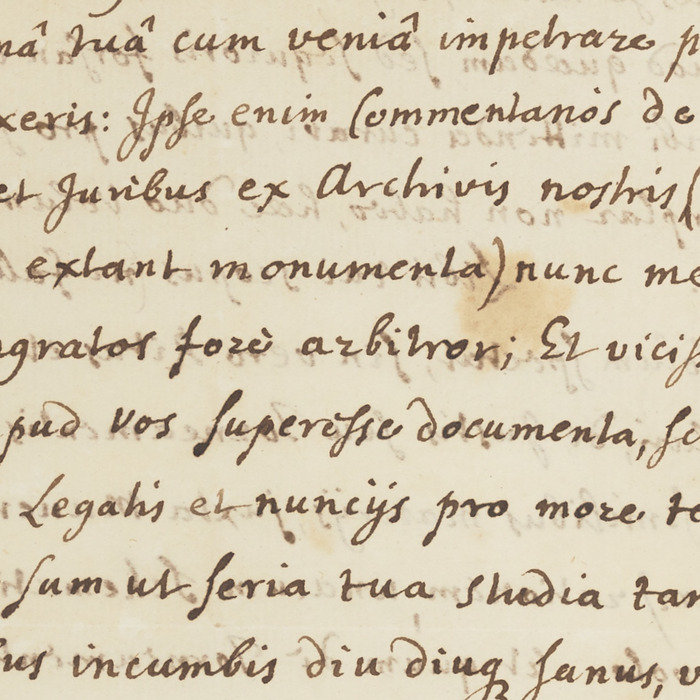 nâ tuâ cum veniâ impetrare p
xeris: Ipse enim Commentarios de
et Juribus ex Archivis nostris (
extant monumenta) nunc me
ngratos fore arbitror; Et viciss
pud vos superesse documenta, sc
Legatis et nuncijs pro more te
sum ut seria tua studia tan
us incumbis diu diuq sanus, v